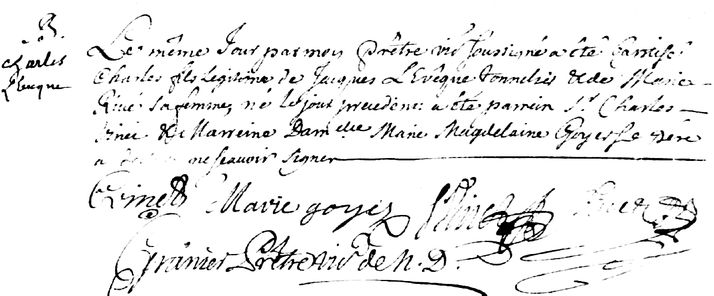 B.
Charles
L'Evêque
Le même Jour par moy Prêtre vic. soussigné a été Baptisé
Charles fils legitime de Jacques L'Evêque tonnelier & de Marie
Rivé sa femme, né le jour precedent a été parrein Sr Charles
& Marreine Damelle Marie Magdelaine Goyer le père
a ne scavoir signer
Marie goyer
Granier Prêtre vic. de N. D.